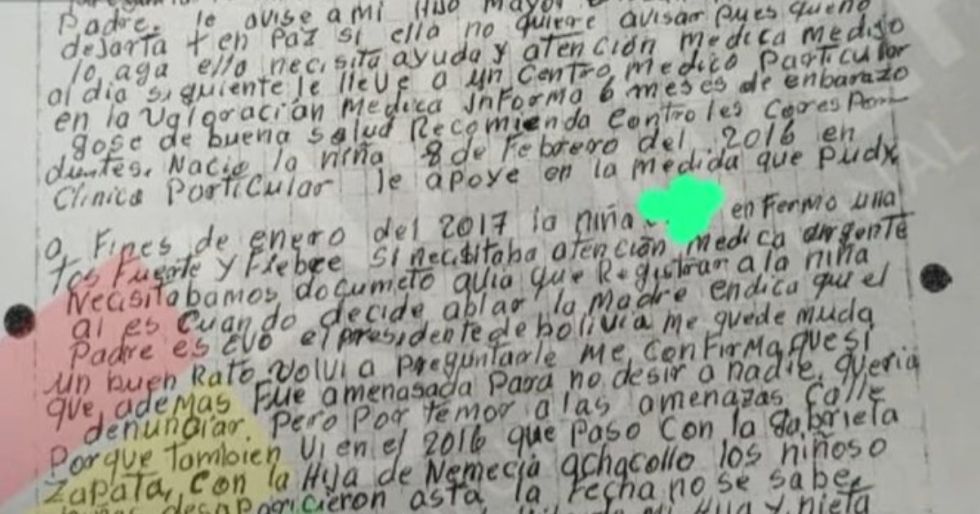 Padre. le avise a mi Hijo Mayor
dejarta + en Paz si ella no quiere avisar pues queno
lo aga ella necisita ayuda y atención medica medijo
al dia siguiente le lleve a un Centro medico Particular
en la Valoracian Medica informa 6 meses de enbarazo
gose de buena salud Recomienda Controles Corespon-
duntes. Nacio la niña 8 de Febrero del 2016 en
Clinica Particular le apoye en la medida que Pudx
a Fines de enero del 2017 la niña enFermo una
tos Fuerte y Fiebre si necisitaba atención medica urgente
Necisitabamos documeto auia que Registrar a la niña
ai es cuando decide ablar la Madre endica que el
Padre es EVO el presidente de bolivia me quede muda
un buen Rato volvi a Preguntarle me ConFirma que si
que, ademas Fue amenasada Para no desir a nadie, queria
denunciar. Pero Por temor a las amenazas Calle
Porque Tambien Vi en el 2016 que Paso Con la gabriela
Zapata, con la Hija de Nemecia achacollo los niños o
desaparicieron asta la Fecha no se sabe
mi Hija y nieta